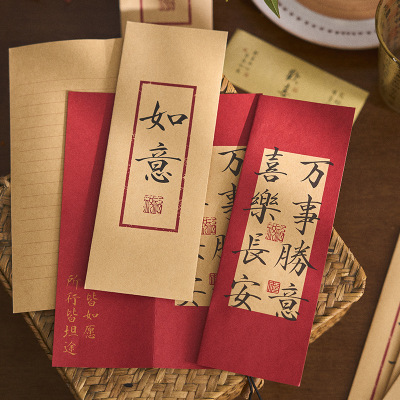 如意
万事勝意
喜樂長安
万
意
安
皆如愿
所行皆坦途